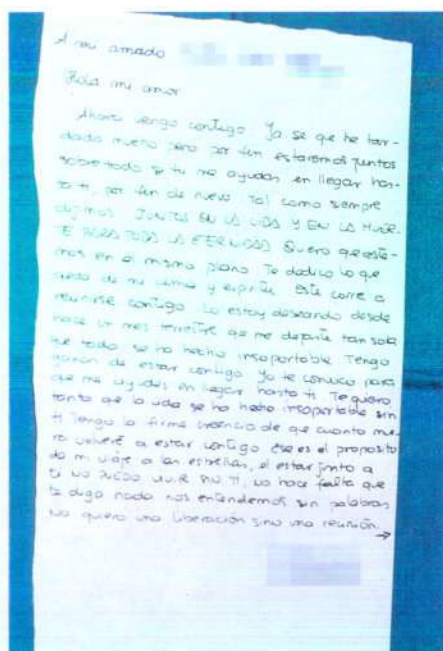 A mi amado
Hola mi amor
Ahora vengo contigo Ya se que he tar-
dado mucho pero por fin estaremos juntos
sobre todo si tu me ayudas en llegar has-
ta ti, por fin de nuevo tal como siempre
dijimos JUNTOS EN LA VIDA Y EN LA MUER-
TE PARA TODA LA ETERNIDAD Quiero que este-
mos en el mismo plano Te dedico lo que
queda de mi alma y espiritu Este corre a
reunirse contigo Lo estoy deseando desde
hace un mes terrestre que me dejaste tan sola
que todo se ha hecho insoportable Tengo
ganas de estar contigo Yo te conozco para
que me ayudes en llegar hasta ti Te quiero
tanto que la vida se ha hecho insoportable sin
ti Tengo la firme creencia de que cuanto mue-
ra volveré a estar contigo ese es el proposito
de mi viaje a las estrellas, el estar junto a
ti NO PUEDO VIVIR SIN TI, no hace falta que
te diga nada nos entendemos sin palabras
No quiero una liberación sino una reunión.
→